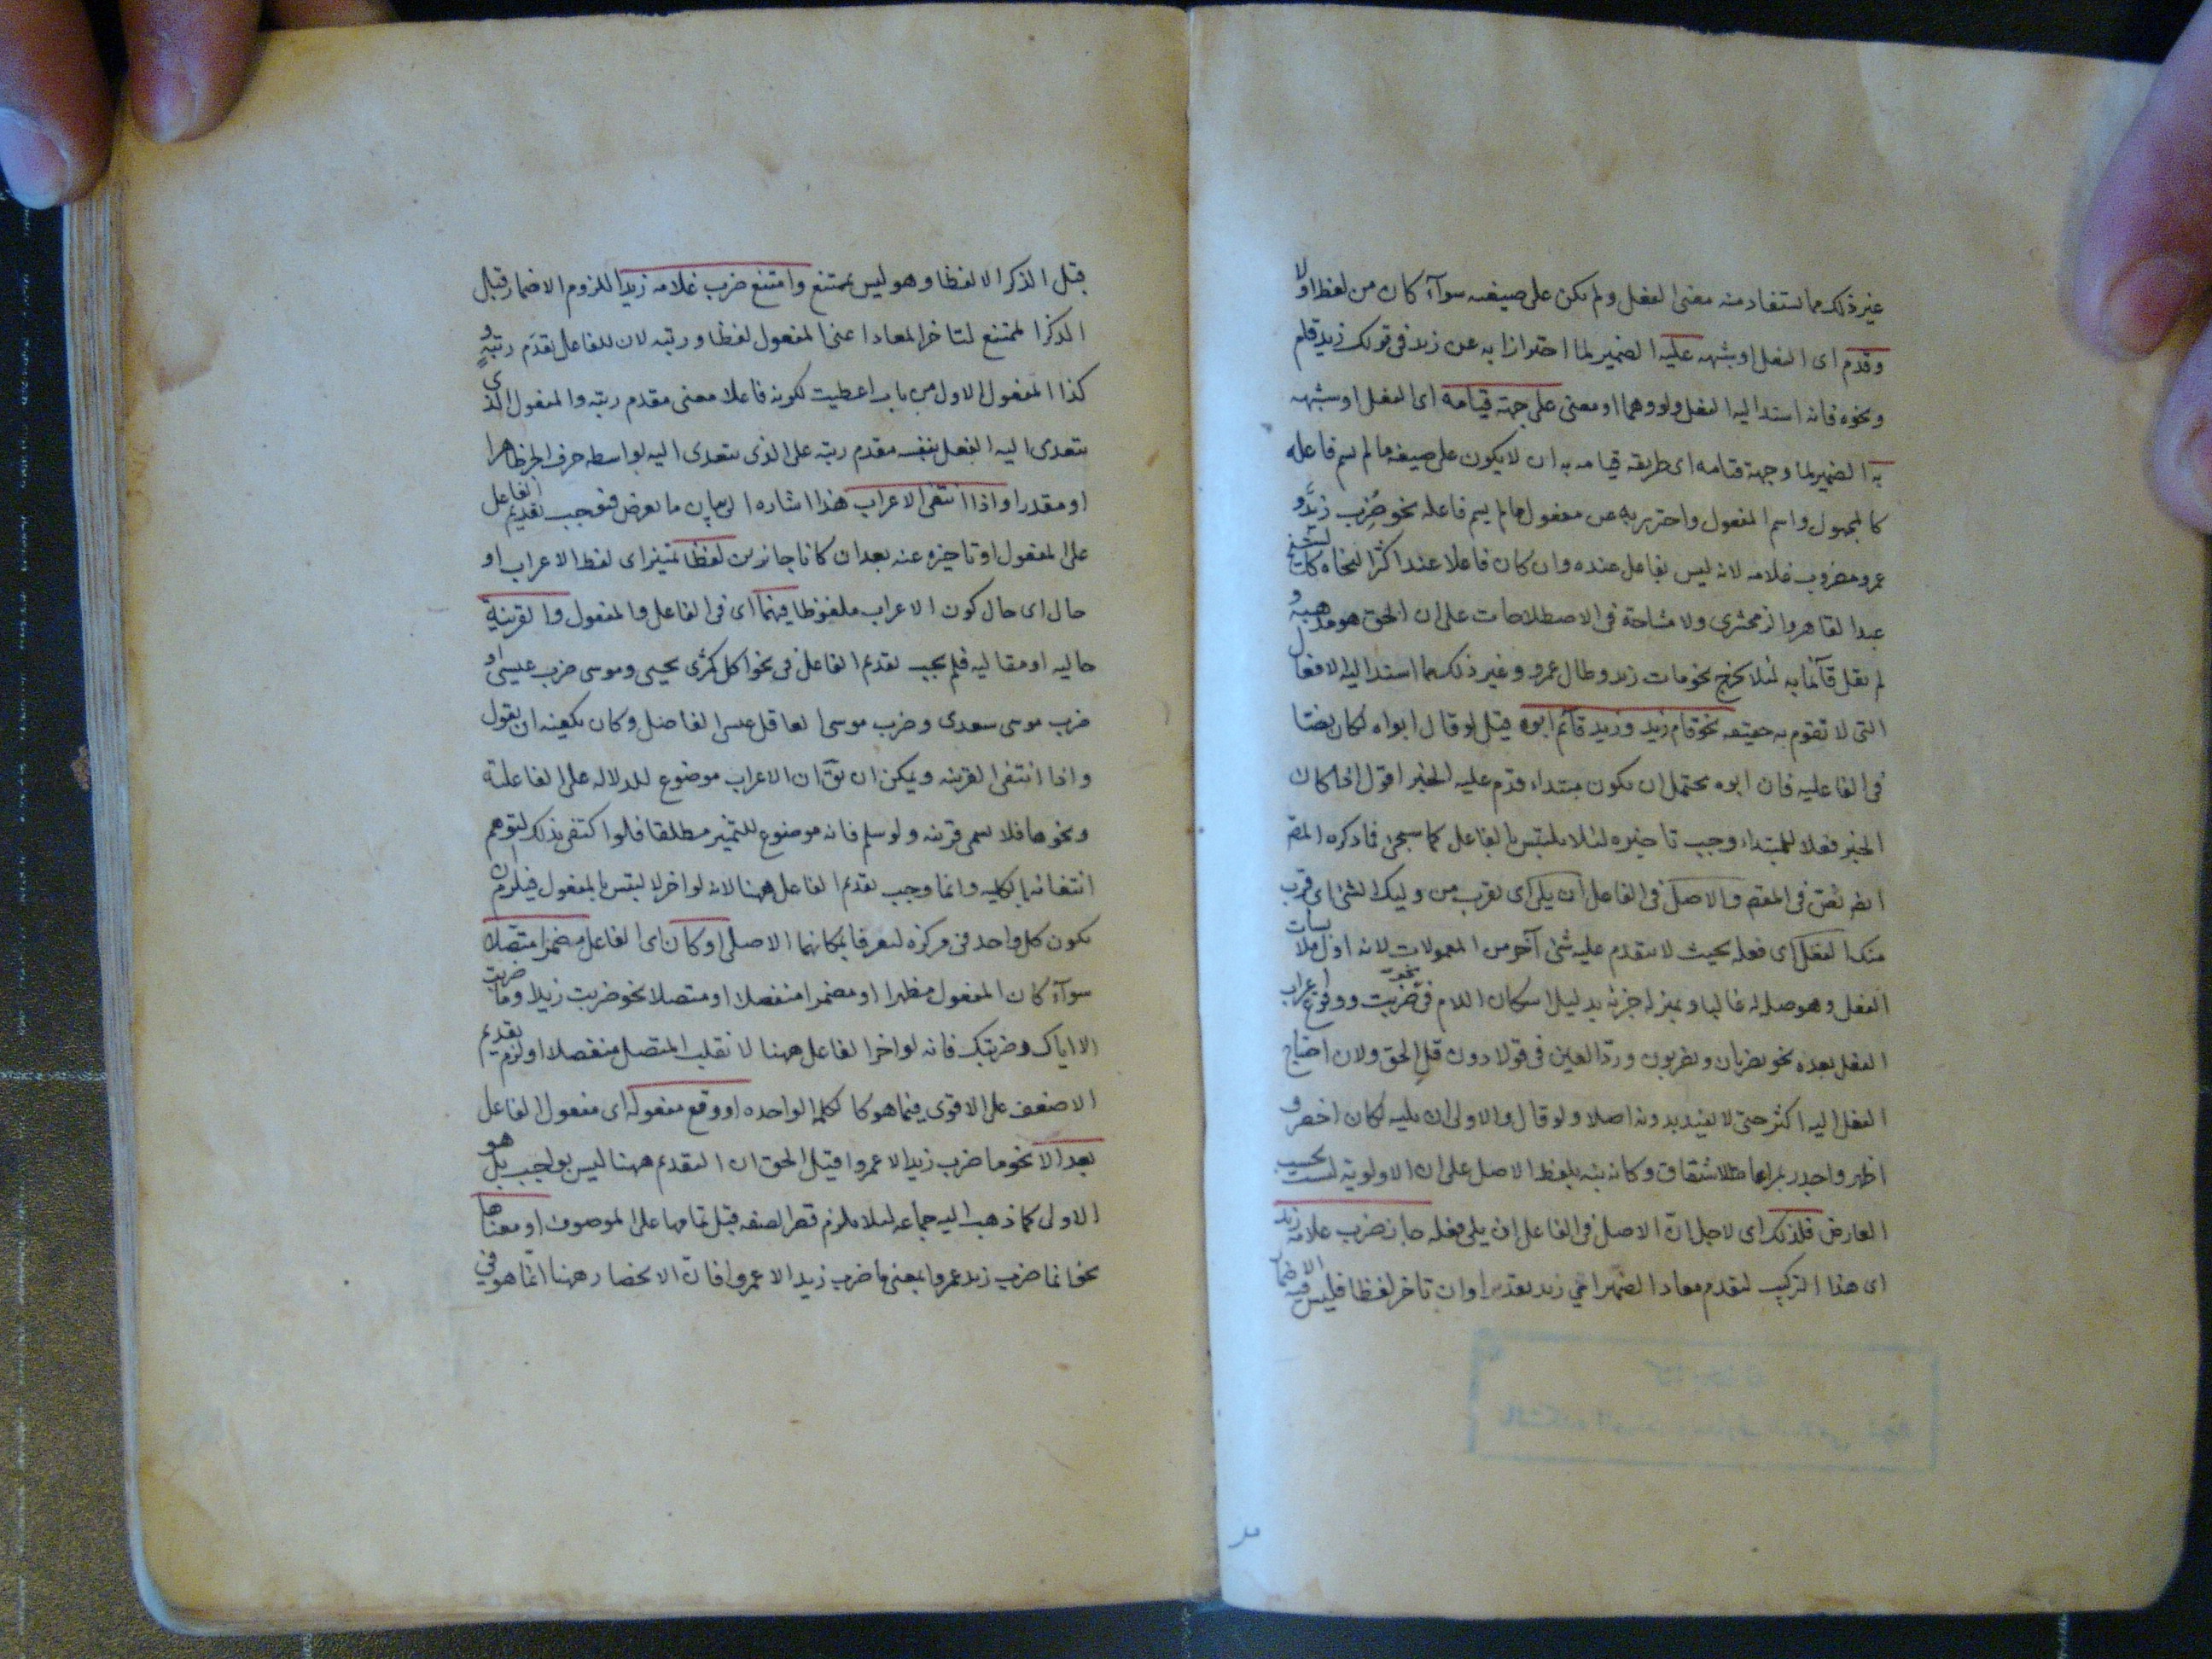 غير ذلك مما يستفاد منه معنى الفعل ولم يكن على صيغته سوآء كان من لفظه اولا
وقدم اى الفعل او شبهه عليه الضمير لما احترازا به عن زيد فى قولك زيد قام
ونحوه فانه اسند اليه الفعل ولو وهما او معنى على جهة قيامه اى الفعل او شبهه
به الضمير لما وجهة قيامه اى طريقة قيامه به ان لا يكون على صيغة ما لم يسم فاعله
كالمجهول واسم المفعول واحترز به عن مفعول ما لم يسم فاعله نحو ضُرِب زيدٌ و
عمرو مضروب غلامه لانه ليس بفاعل عنده وان كان فاعلا عند اكثر النحاة كالشيخ
عبد القاهر والزمخشرى ولا مشاحة فى الاصطلاحات على ان الحق هو مذهبه و
لم يقل قآئما به لئلا يخرج نحو مات زيد وطال عمرو وغير ذلك مما اسند اليه الافعال
التى لا تقوم به حقيقة نحو قام زيد وزيد قآئم ابوه قيل لو قال ابواه لكان نصّا
فى الفاعلية فان ابوه يحتمل ان يكون مبتداء قدّم عليه الخبر اقول اذا كان
الخبر فعلا للمبتداء وجب تاخيره لئلا يلتبس بالفاعل كما سيجئ فما ذكره المصـ
ايضا نصّ فى المقصـ والاصل فى الفاعل ان يلى اى يقرب من وليك الشئ اى قرب
منك الفعل اى فعله بحيث لا يتقدم عليه شئ آخر من المعمولات لانه اول ملابسات
الفعل وهو صلة له غالبا وبمنزلة جزئه بدليل اسكان اللام فى نحو ضربت ووقوع اعراب
الفعل بعده نحو يضربان ويضربون وردّ العين فى قولا دون قل الحق ولان احتياج
الفعل اليه اكثر حتى لا يفيد بدونه اصلا ولو قال والاولى ان يليه لكان اخصر و
اظهر واجدر بمراعاة الاشتقاق وكانه نبّه بلفظ الاصل على ان الاولوية ليست بحسب
العارض فلذلك اى لاجل انّ الاصل فى الفاعل ان يلى فعله جاز ضرب غلامه زيد
اى هذا التركيب لتقدم معاد الضمير اعنى زيد تقديرا وان تاخر لفظا فليس فيه الاضمار
قبل الذكر الا لفظا وهو ليس بممتنع وامتنع ضرب غلامه زيدا للزوم الاضمار قبل
الذكر الممتنع لتاخر المعاد اعنى المفعول لفظا ورتبة لان للفاعل تقدّم رتبةٍ و
كذا المفعول الاول من باب اعطيت لكونه فاعلا معنى مقدم رتبة والمفعول الذى
يتعدى اليه الفعل بنفسه مقدم رتبة على الذى يتعدى اليه بواسطة حرف الجر ظاهرا
او مقدرا واذا انتفى الاعراب هذا اشارة الى بيان ما يعرض فيوجب تقديم الفاعل
على المفعول او تاخيره عنه بعد ان كانا جائزين لفظا تمييز اى لفظ الاعراب او
حال اى حال كون الاعراب ملفوظا فيهما اى فى الفاعل والمفعول والقرينة
حاليه او مقاليه فلم يجب تقديم الفاعل فى نحو اكل كمثرى يحيى وموسى ضرب عيسى او
ضرب موسى سعدى وضرب موسى العاقل عيسى الفاضل وكان يكفيه ان يقول
واذا انتفى القرينه ويمكن ان يقَ ان الاعراب موضوع للدلاله على الفاعلية
ونحوها فلا يسمى قرينه ولو سلم فانه موضوع للتمييز مطلقا فلو اكتفى بذلك لتوهم
انتفائه بالكليه وانما وجب تقديم الفاعل ههنا لانه لو اخر لا لتبس بالمفعول فيلزم ان
يكون كل واحد فى مركزه ليعرفا بمكانهما الاصلى او كان اى الفاعل مضمرا متصلا
سوآء كان المفعول مظهرا او مضمرا منفصلا او متصلا نحو ضربت زيدا وما ضربت
الا اياك وضربتك فانه لو اخر الفاعل ههنا لا نقلب المتصل منفصلا او لزم تقديم
الاضعف على الاقوى فيما هو كالكلمة الواحده او وقع مفعوله اى مفعول الفاعل
بعد الا نحو ما ضرب زيد الا عمروا قيل الحق ان التقديم ههنا ليس بواجب بل هو
الاولى كما ذهب اليه جماعه لئلا يلزم قصر الصفه قبل تمامها على الموصوف او معناها
نحو انما ضرب زيد عمروا بمعنى ما ضرب زيد الا عمروا فان الانحصار ههنا انّما هو فى